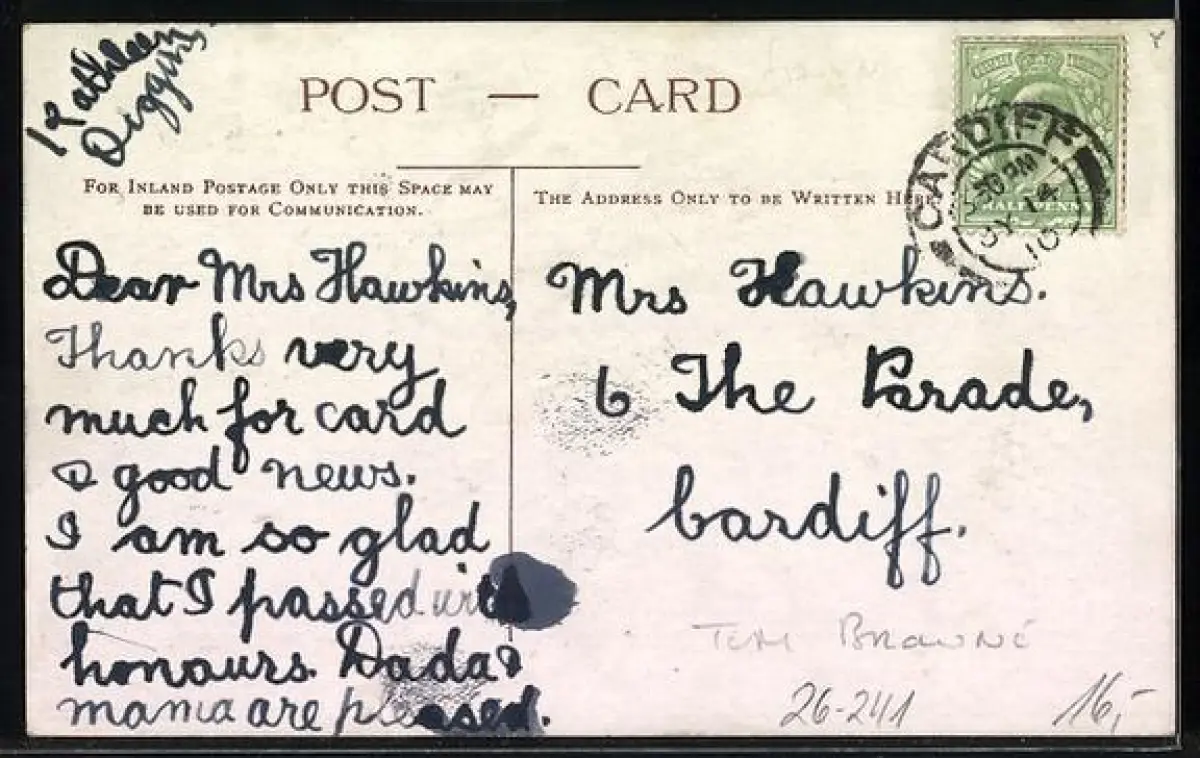 Kathleen
Diggins
POST — CARD
FOR INLAND POSTAGE ONLY THIS SPACE MAY
BE USED FOR COMMUNICATION.
THE ADDRESS ONLY TO BE WRITTEN HERE
CARDIFF
30 PM
JY 14
10
HALFPENNY
Dear Mrs Hawkins,
Thanks very
much for card
& good news.
I am so glad
that I passed with
honours. Dada &
mama are pleased.
Mrs Hawkins.
6 The Parade,
Cardiff.
Tom Browne
26-241
16,-